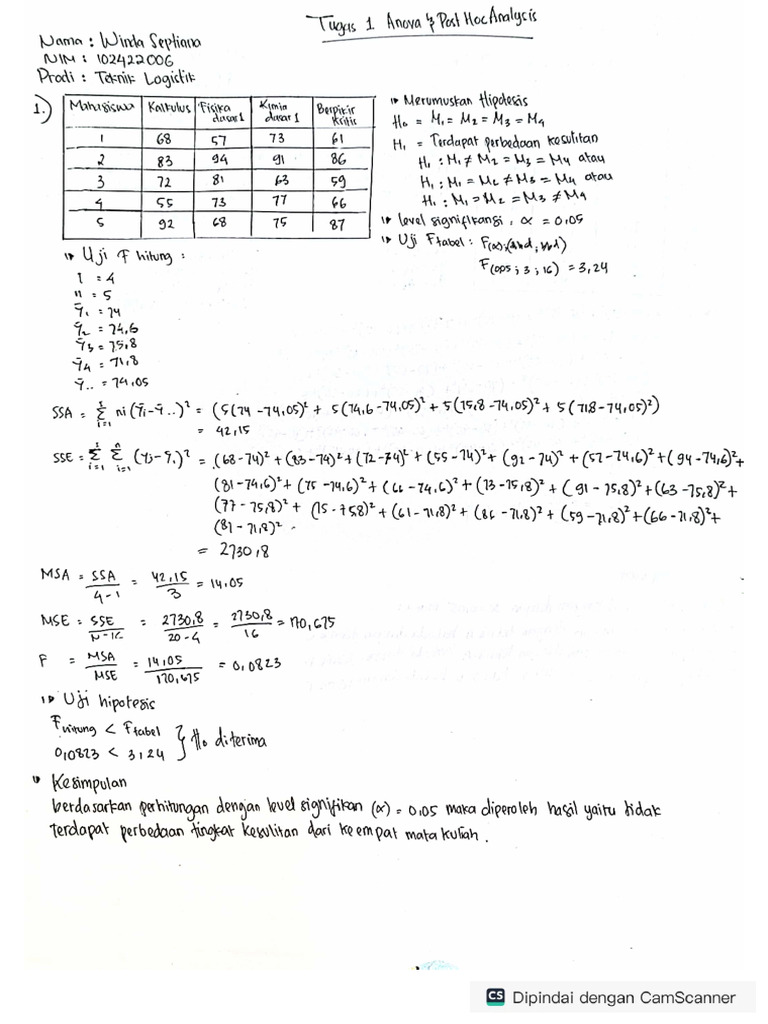 Tugas 1 Anova & Post Hoc Analysis
Nama : Winda Septiana
NIM : 102422006
Prodi : Teknik Logistik
1.) Mahasiswa Kalkulus Fisika dasar 1 Kimia dasar 1 Berpikir Kritis
1 68 57 73 61
2 83 94 91 86
3 72 81 63 59
4 55 73 77 66
5 92 68 75 87
Merumuskan Hipotesis
H₀ = M₁ = M₂ = M₃ = M₄
H₁ = Terdapat perbedaan kesulitan
H₁ : M₁ ≠ M₂ = M₃ = M₄ atau
H₁ : M₁ = M₂ ≠ M₃ = M₄ atau
H₁ : M₁ = M₂ = M₃ ≠ M₄
level signifikansi, α = 0,05
Uji Ftabel :
F(0,05 ; 3 ; 16) = 3,24
Uji F hitung :
I = 4
n = 5
ȳ₁ = 74
ȳ₂ = 74,6
ȳ₃ = 75,8
ȳ₄ = 71,8
ȳ.. = 74,05
SSA = Σ ni (ȳi - ȳ..)² = (5(74 - 74,05)² + 5(74,6 - 74,05)² + 5(75,8 - 74,05)² + 5(71,8 - 74,05)²)
= 42,15
SSE = Σ Σ (yj - ȳ.)² = (68-74)² + (83-74)² + (72-74)² + (55-74)² + (92-74)² + (57-74,6)² + (94-74,6)² +
(81-74,6)² + (75-74,6)² + (66-74,6)² + (73-75,8)² + (91-75,8)² + (63-75,8)² +
(77-75,8)² + (75-75,8)² + (61-71,8)² + (86-71,8)² + (59-71,8)² + (66-71,8)² +
(87-71,8)²
= 2730,8
MSA = SSA / 4-1 = 42,15 / 3 = 14,05
MSE = SSE / N-K = 2730,8 / 20-4 = 2730,8 / 16 = 170,675
F = MSA / MSE = 14,05 / 170,675 = 0,0823
Uji hipotesis
Fhitung < Ftabel
0,0823 < 3,24 } H₀ diterima
Kesimpulan
berdasarkan perhitungan dengan level signifikan (α) = 0,05 maka diperoleh hasil yaitu tidak
terdapat perbedaan tingkat kesulitan dari keempat mata kuliah.
CS Dipindai dengan CamScanner